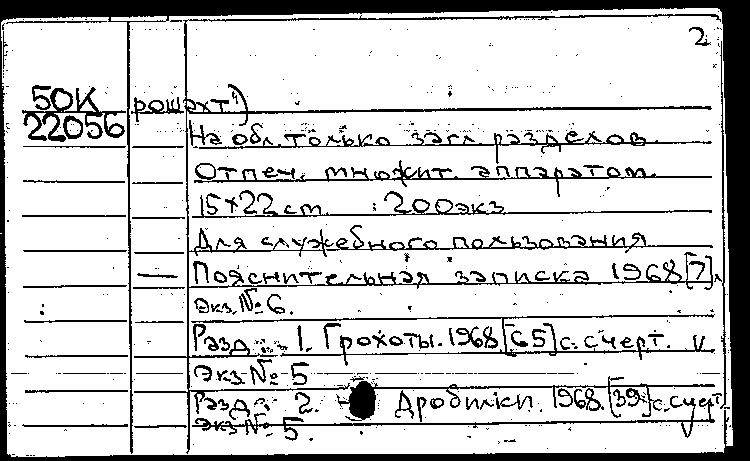 2
50К рошахт")
22056
На обл. только загл. разделов.
Отпеч. множит. аппаратом.
15×22 cm. 200 экз
Для служебного пользования
— Пояснительная записка 1968 [7].
Экз. № 6.
Разд. 1. Грохоты. 1968. [65] с. с черт. v
Экз. № 5
Разд. 2. Дробилки. 1968. [39] с. с черт. v
Экз. № 5.